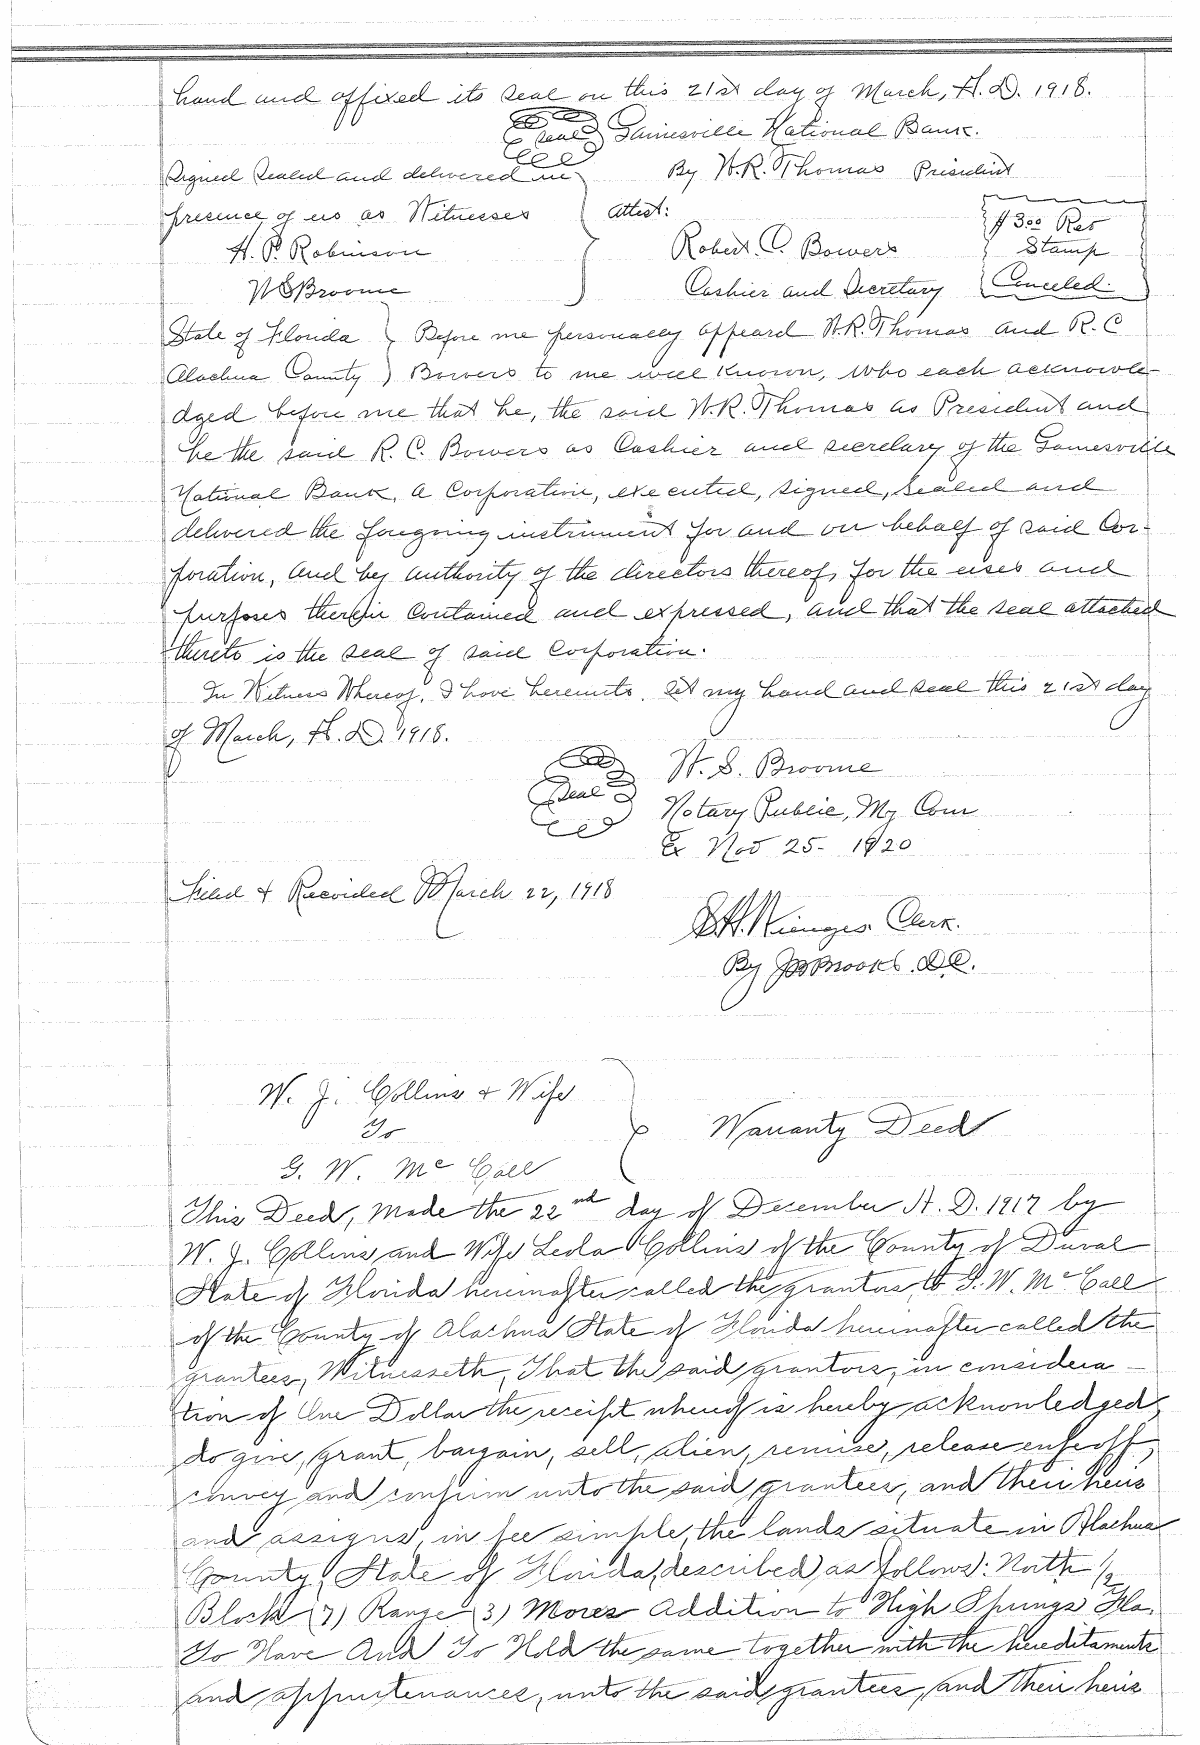 hand and affixed its seal on this 21st day of March, A.D. 1918.
seal Gainesville National Bank.
Signed Sealed and delivered in By W.R. Thomas President
presence of us as Witnesses Attest: $3.00 Rev
H. P. Robinson Robert C. Bowers Stamp
W S Broome Cashier and Secretary Canceled.
State of Florida Before me personally appeard W.R. Thomas and R. C
Alachua County Bowers to me well known, who each acknowle-
dged before me that he, the said W.R. Thomas as President and
he the said R. C. Bowers as Cashier and secretary of the Gainesville
National Bank, a Corporation, executed, signed, sealed and
delivered the foregoing instrument for and on behalf of said Cor-
poration, and by authority of the directors thereof, for the uses and
purposes therein contained and expressed, and that the seal attached
thereto is the seal of said Corporation.
In Witness Whereof, I have hereunto, set my hand and seal this 21st day
of March, A.D. 1918.
W. S. Broome
Seal Notary Public, My Com
Ex Nov 25- 1920
Filed & Recorded March 22, 1918
S.H. Wienges. Clerk.
By JB Brooks. D.C.
W. J. Collins & Wife
To Warranty Deed
G. W. McCall
This Deed, Made the 22nd day of December A. D. 1917 by
W. J. Collins and Wife Leola Collins of the County of Duval
State of Florida hereinafter called the grantors to G. W. McCall
of the County of Alachua State of Florida hereinafter called the
grantees, Witnesseth, That the said grantors, in considera-
tion of One Dollar the receipt whereof is hereby acknowledged,
do give, grant, bargain, sell, alien, remise, release enfeoff,
convey and confirm unto the said grantees, and their heirs
and assigns, in fee simple, the lands situate in Alachua
County, State of Florida, described as follows: North 1/2
Block (7) Range (3) Mores Addition to High Springs Fla.
To Have And To Hold the same together with the hereditaments
and appurtenances, unto the said grantees, and their heirs